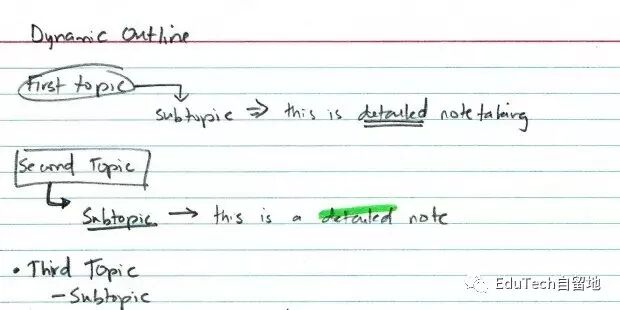 Dynamic Outline
First topic
subtopic ⇒ this is detailed note taking
Second Topic
Subtopic → this is a detailed note
• Third Topic
- Subtopic
EduTech自留地